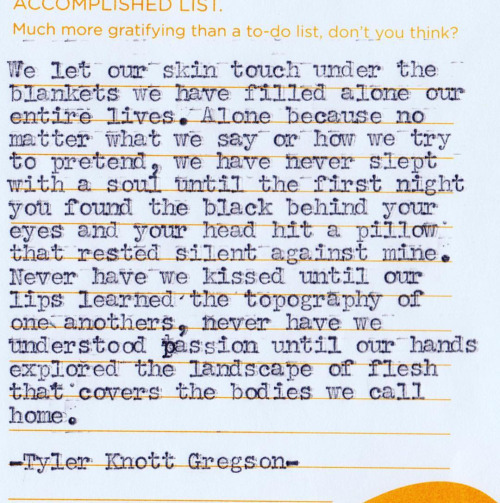 ACCOMPLISHED LIST.
Much more gratifying than a to-do list, don't you think?
We let our skin touch under the
blankets we have filled alone our
entire lives. Alone because no
matter what we say or how we try
to pretend, we have never slept
with a soul until the first night
you found the black behind your
eyes and your head hit a pillow
that rested silent against mine.
Never have we kissed until our
lips learned the topography of
one anothers, never have we
understood passion until our hands
explored the landscape of flesh
that covers the bodies we call
home.
-Tyler Knott Gregson-